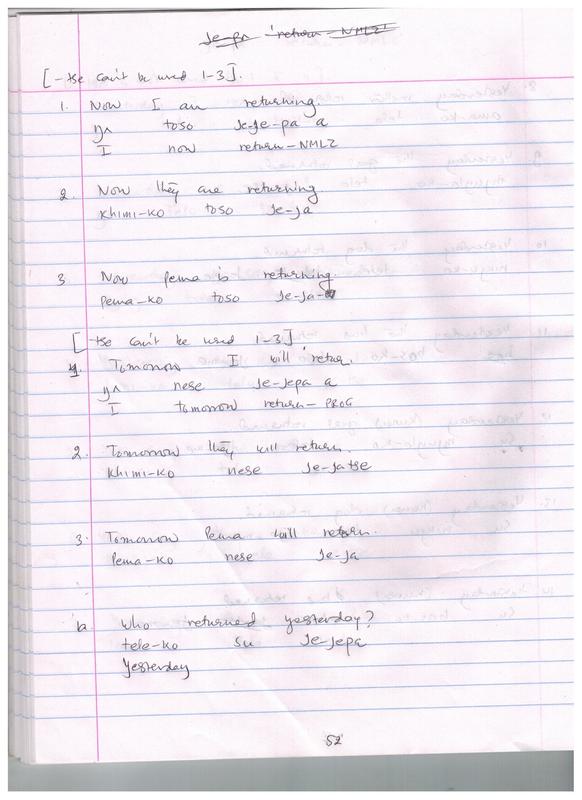 Je-pʌ 'return-NMLZ'
[-tse can't be used 1-3].
1. Now I am returning.
ŋʌ toso Je-Je-pa a
I now return-NMLZ
2. Now they are returning.
Khimi-ko toso Je-Ja
3 Now Pema is returning
Pema-ko toso Je-Ja-
[-tse can't be used 1-3]
1. Tomorrow I will return.
ŋʌ nese Je-Jepa a
I tomorrow return-PROG
2. Tomorrow they will return.
Khimi-ko nese Je-Jatse
3. Tomorrow Pema will return.
Pema-ko nese Je-Ja
Who returned yesterday?
tele-ko su Je-Jepa
Yesterday
52